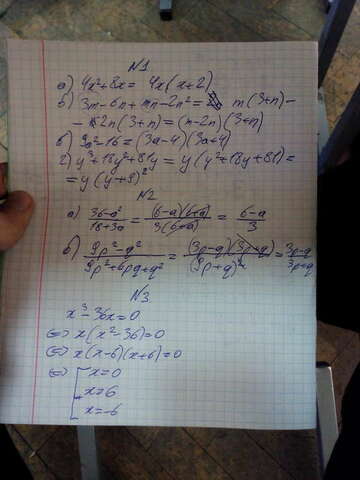 N1
а) 4x²+8x= 4x(x+2)
б) 3m-6n+mn-2n²= m(3+n)-
-2n(3+n)=(m-2n)(3+n)
в) 9a²-16=(3a-4)(3a+4)
г) y³+18y²+81y=y(y²+18y+81)=
=y(y+9)²
N2
а) (36-a²)/(18+3a)=((6-a)(6+a))/(3(6+a))=(6-a)/3
б) (9p²-q²)/(9p²+6pq+q²)=((3p-q)(3p+q))/((3p+q)²)=(3p-q)/(3p+q)
N3
x³-36x=0
⇔ x(x²-36)=0
⇔ x(x-6)(x+6)=0
⇔ [x=0
x=6
x=-6